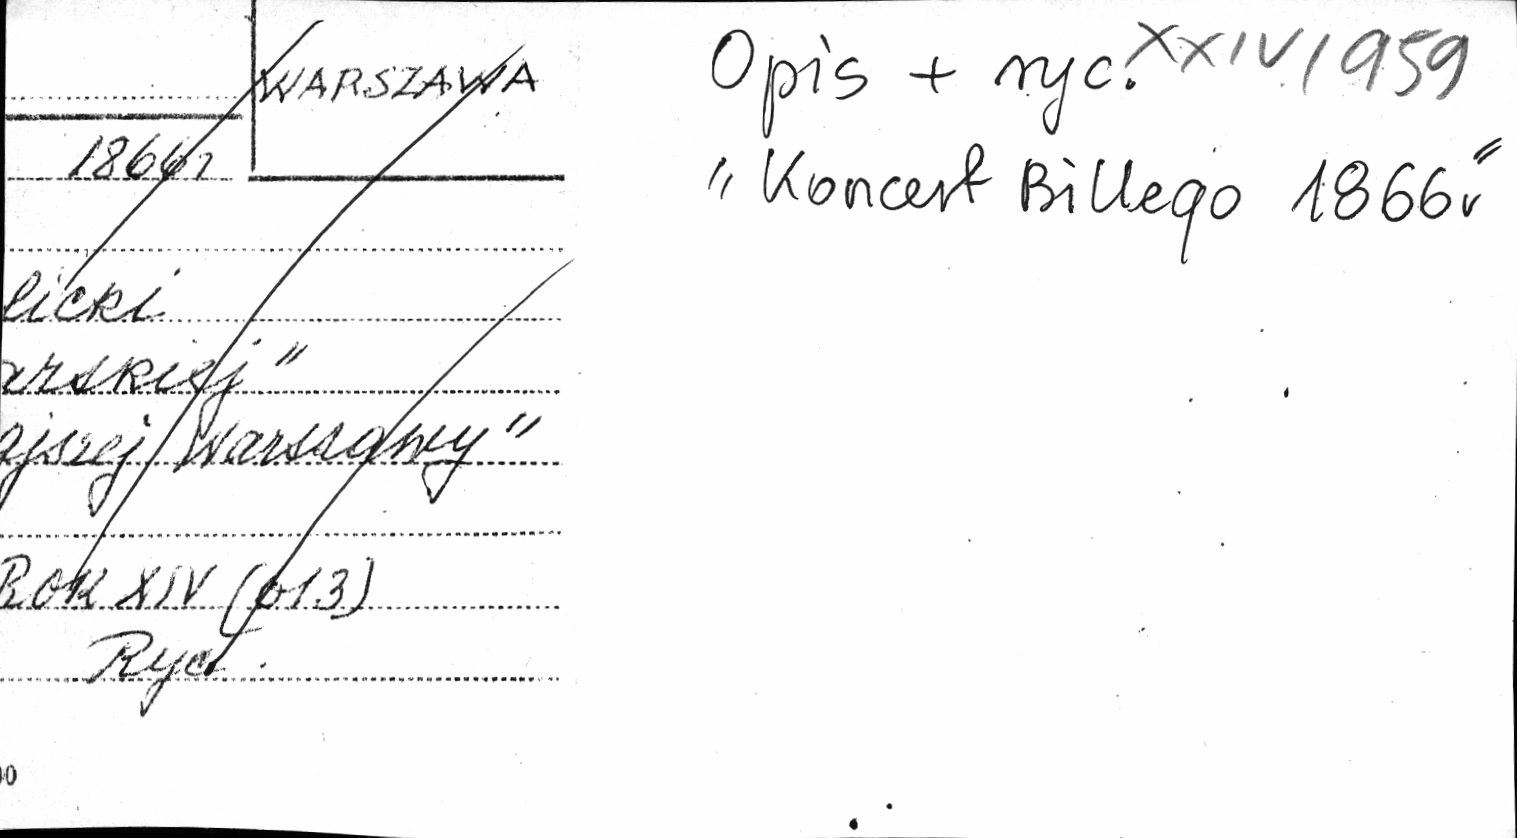 WARSZAWA
1866r
licki
arskiej"
ajszej Warszawy"
ROK XIV (613)
Ryc.
00
Opis + ryc. XXIV/1959
"Koncert Billego 1866r"